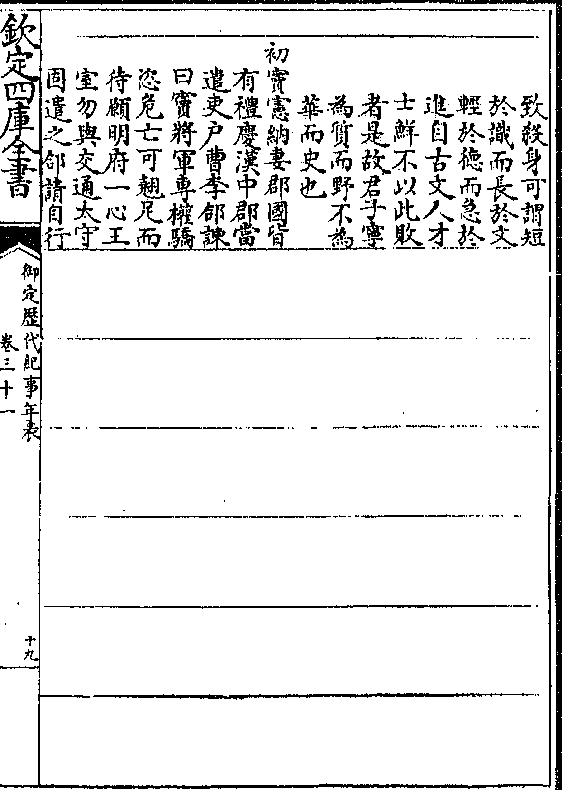 致殺身可謂短
於識而長於文
輕於德而急於
進自古文人才
士鮮不以此敗
者是故君子寧
為質而野不為
華而史也
初竇憲納妻郡國皆
有禮慶漢中郡當
遣吏戶曹李郃諫
曰竇將軍專權驕
恣危亡可翹足而
待願明府一心王
室勿與交通太守
固遣之郃請自行
欽定四庫全書
御定歷代紀事年表
卷三十一
十九